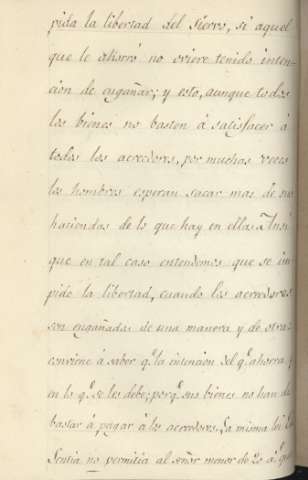 pida la libertad del Siervo, si aquel
que le ahorró no oviere tenido inten-
cion de engañar; y esto, aunque todos
los bienes no basten á satisfacer á
todos los acredores, por muchas veces
los hombres esperan sacar mas de sus
haciendas de lo que hay en ellas. Ansi
que en tal caso entendemos que se im-
pide la libertad, cuando los acredores
son engañados de una manera y de otra
conviene á saber q.e la intencion del q.e ahorra y
en lo q.e se les debe; porq.e sus bienes no han de
bastar á pagar á los acredores. La misma lei
Sentia no permitia al señor menor de 20 a.s que